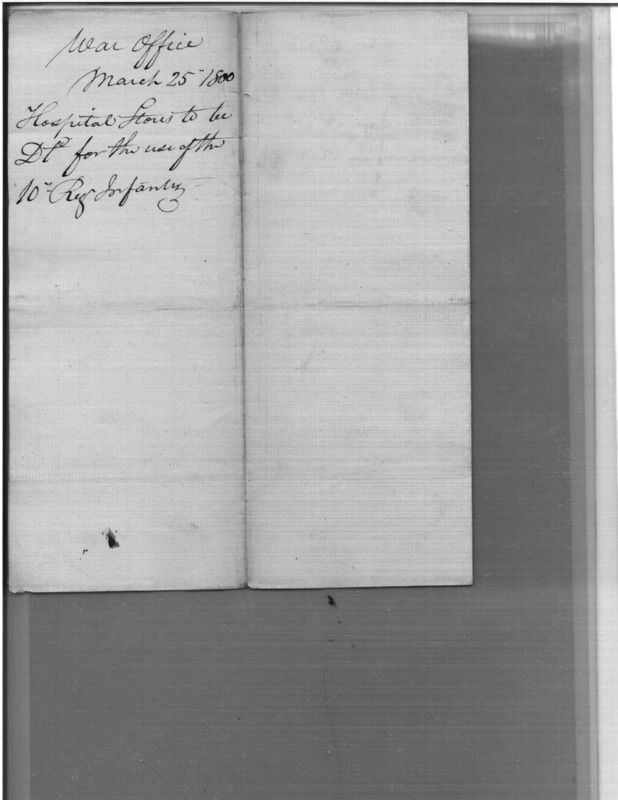 War Office
March 25th 1800
Hospital Stores to be
Dld for the use of the
10th Regt Infantry